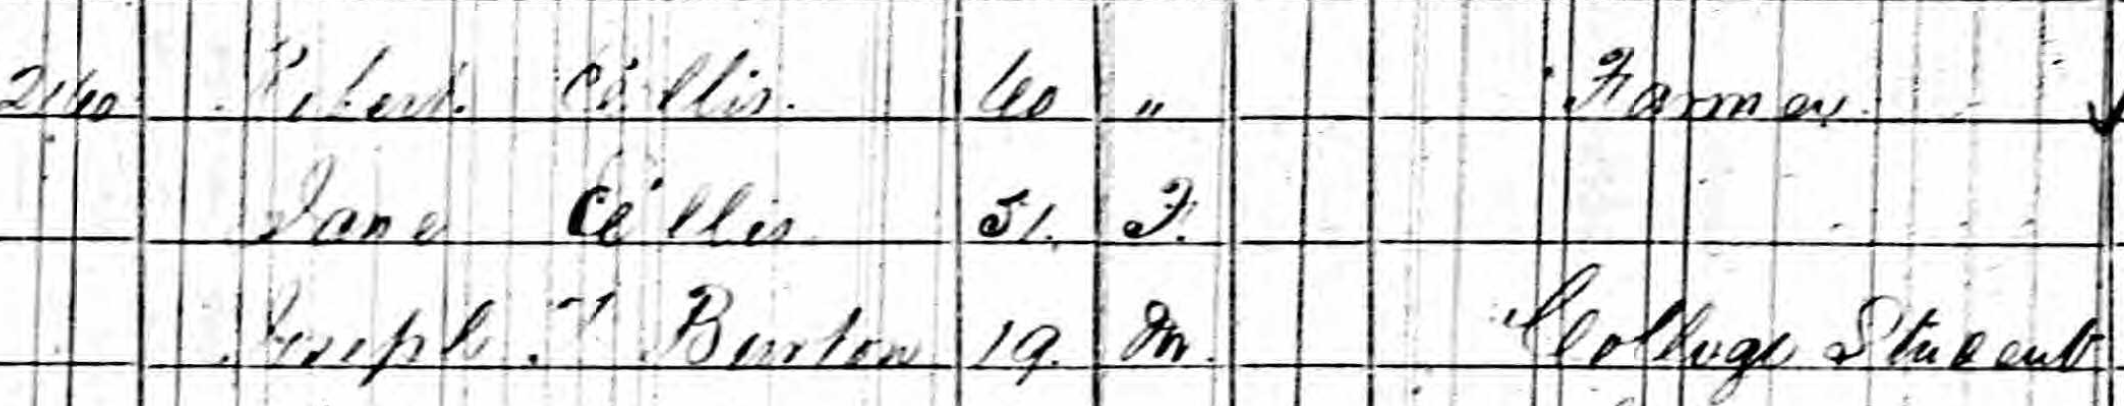 260 Robert Ellis. 60 " Farmer.
Jane Ellis 51. F.
Joseph F Burton 19. M. College Student